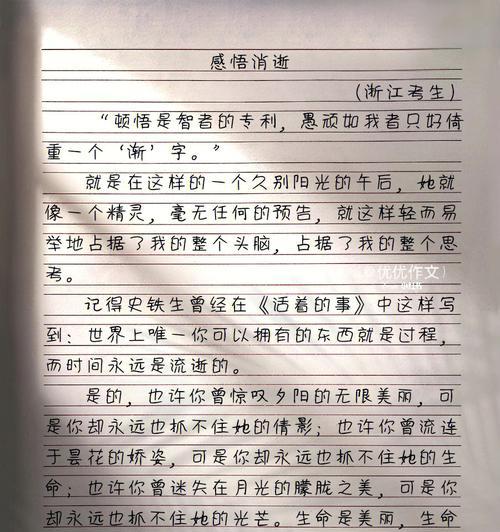 感悟消逝
(浙江考生)
“顿悟是智者的专利，愚顽如我者只好倚
重一个‘渐’字。”
就是在这样的一个久别阳光的午后，她就
像一个精灵，毫无任何的预告，就这样轻而易
举地占据了我的整个头脑，占据了我的整个思
考。
@优优作文
小红书
记得史铁生曾经在《活着的事》中这样写
到：世界上唯一你可以拥有的东西就是过程，
而时间永远是流逝的。
是的，也许你曾惊叹夕阳的无限美丽，可
是你却永远也抓不住她的倩影；也许你曾流连
于昙花的娇姿，可是你却永远也抓不住她的生
命；也许你曾迷失在月光的朦胧之美，可是你
却永远也抓不住她的光芒。生命是美丽，生命